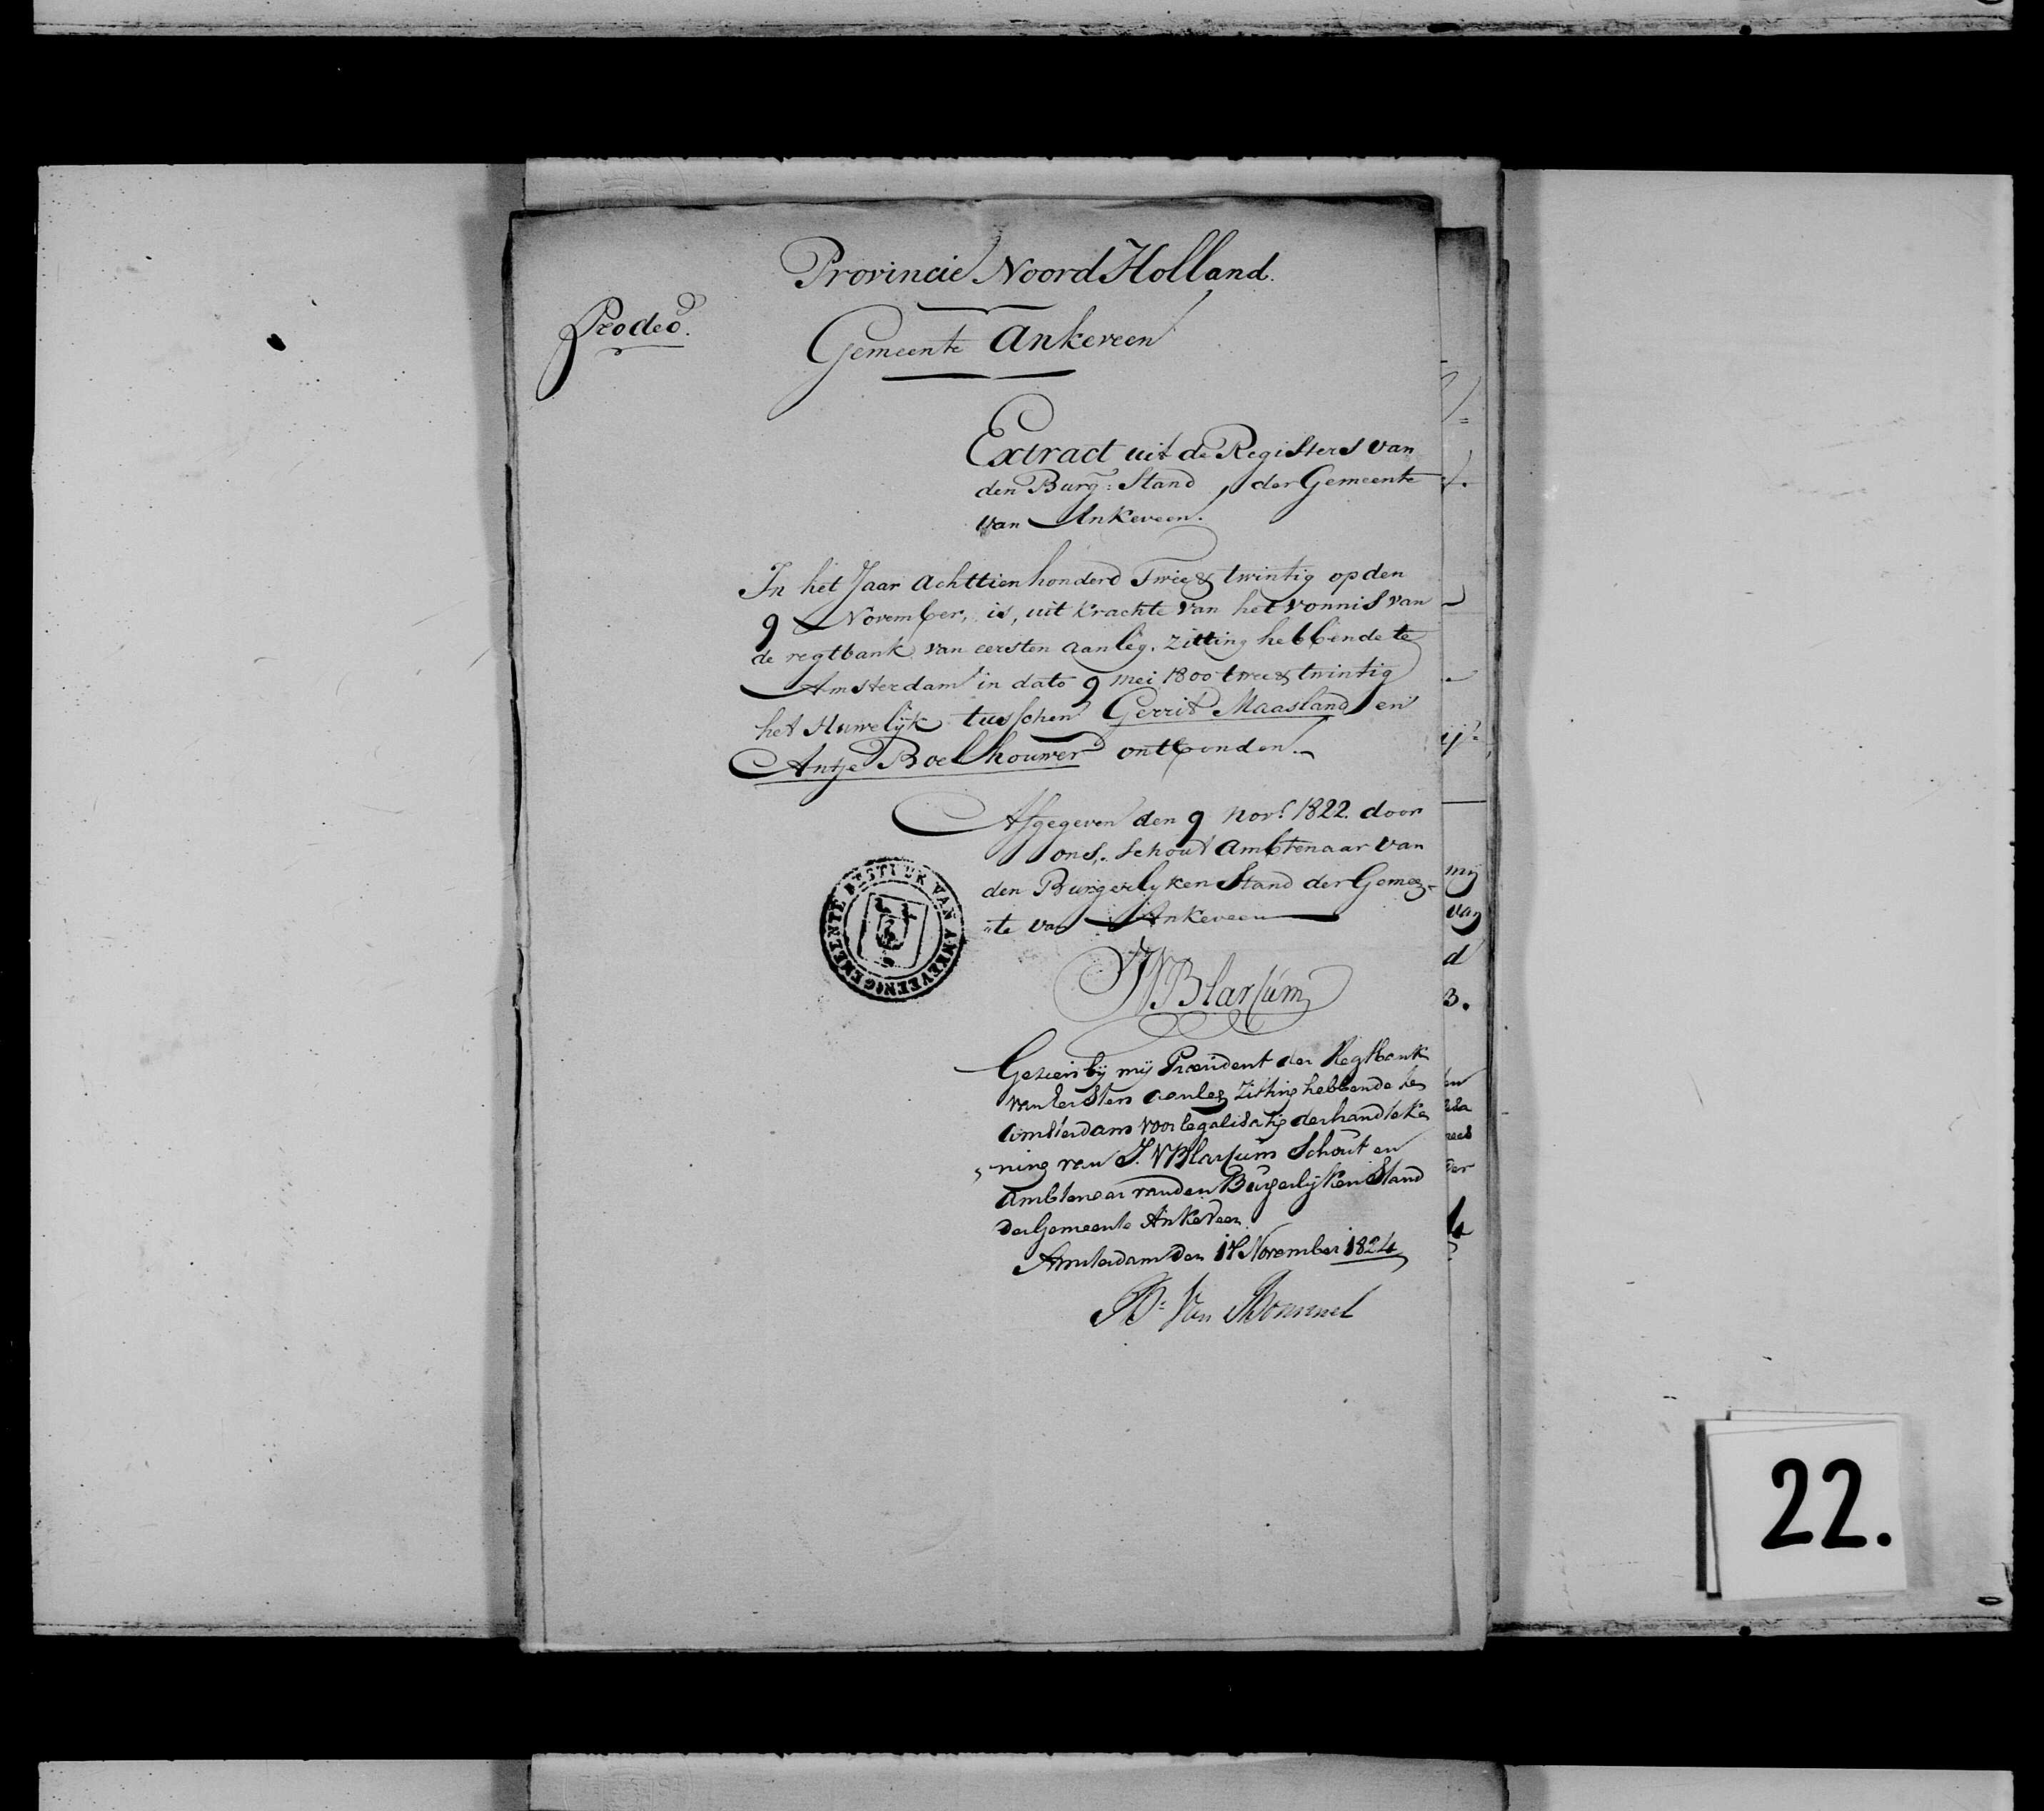 Provincie Noord Holland.
Prodeo.
Gemeente Ankeveen
Extract uit de Registers van
den Burg: Stand, der Gemeente
van Ankeveen.
In het Jaar achttienhonderd Twee & twintig op den
9 November, is, uit krachte van het vonnis van
de regtbank van eersten aanleg. zitting hebbende te
Amsterdam in dato 9 mei 1800 twee & twintig
het Huwelijk tusschen Gerrit Maasland en
Antje Boelhouwer ontbonden.
Afgegeven den 9 Novr. 1822. door
ons, Schout Ambtenaar van
den Burgerlyken Stand der Gemee-
"te van Ankeveen
JVBlarcum
Gezien bij mij President der Regtbank
van Eersten aanleg Zitting hebbende te
Amsterdam voor legalisatie der handteke
"ning van J. VBlarcum Schout en
Ambtenaar van den Burgerlijken Stand
der Gemeente Ankeveen
Amsterdam den 17 November 1824
Van Bommel
GEMEENTE BESTUUR VAN ANKEVEEN
mij
van
d
3.
4
22.